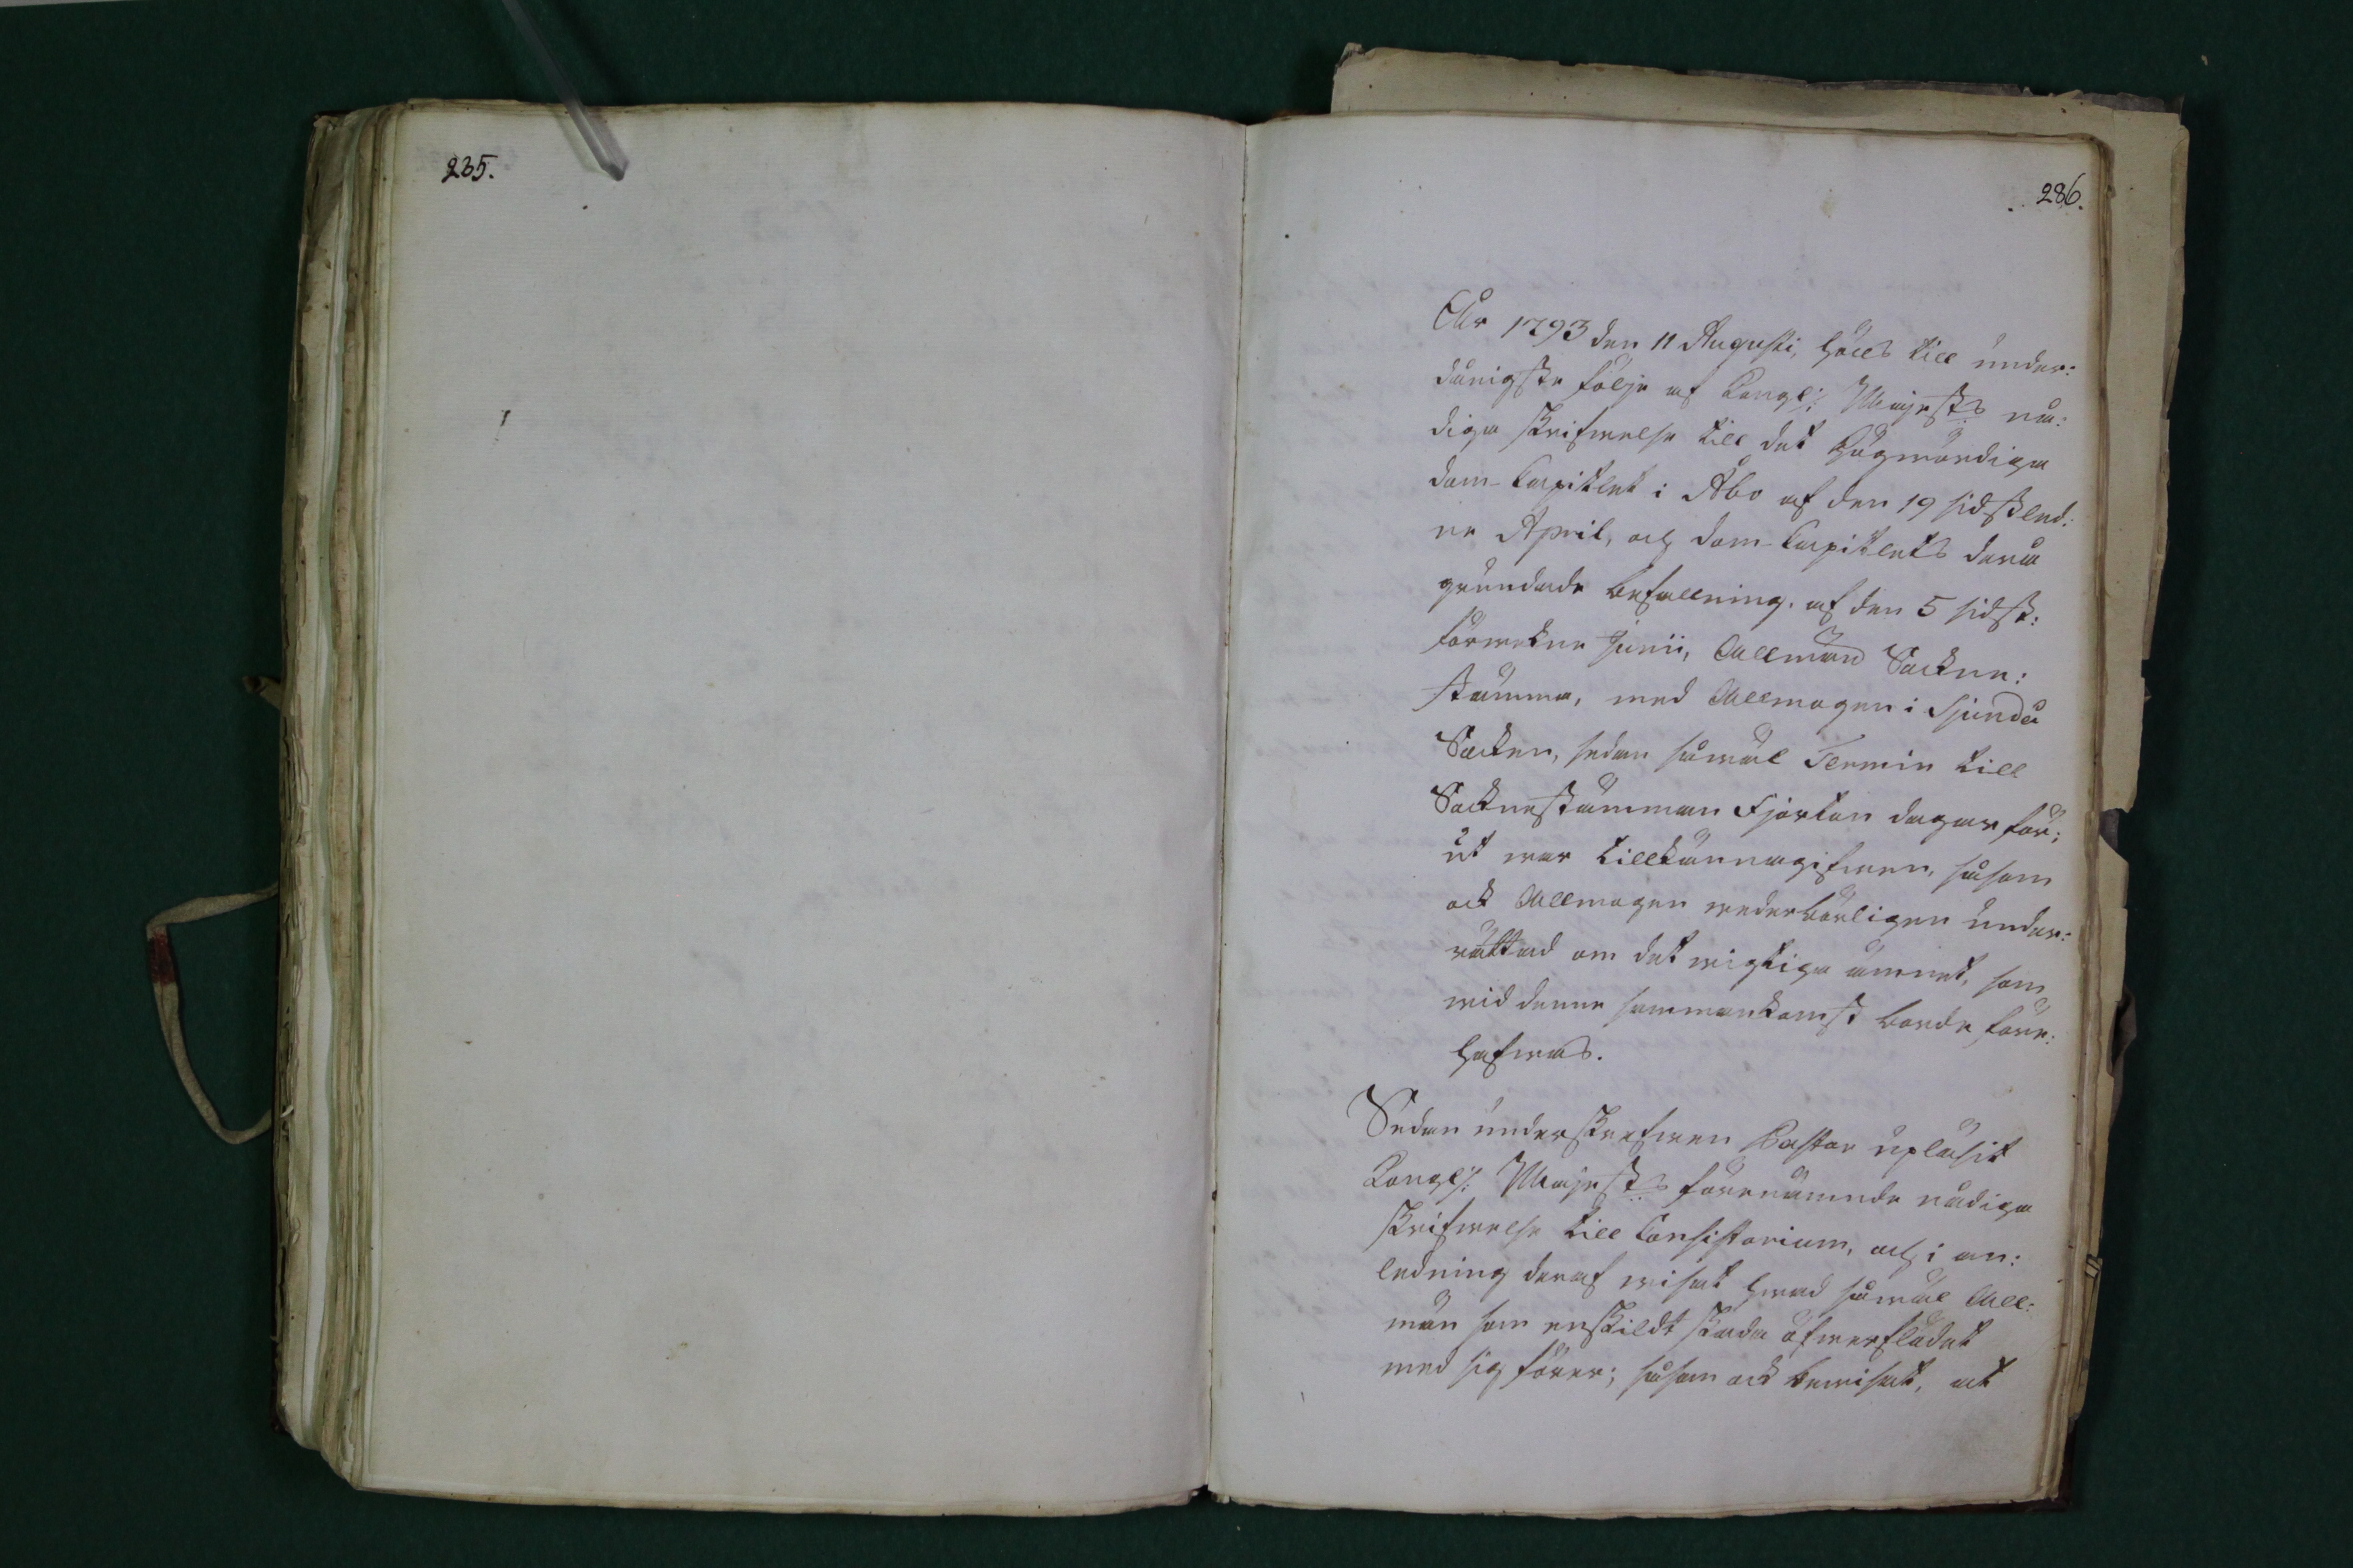 235.
286.
År 1793 den 11 Augusti, hölls till under:
dånigste följe af Kongl:. Majesets nå:
diga skrifwelse till det Högwördiga
Dom-Capitlet i Åbo af den 19 sidstled:
ne April, och Dom-Capitlets derå
grundade befallning af den 5 sidst:
förwekne Junii, Allmän Sockne:
stämma, med Allmogen i Sjundeå
Sockn, sedan såwäl Termin till
Socknestämman Fjorton dagar för:
ut war tillkännagifwen, såsom
ock Allmogen wederbörligen under:
rättad om det wigtiga ämnet, som
wid denne sammankomst borde före:
hafwas.
Sedan underskrefwen Pastor upläsit
Kongl:. Majesets förenämnde nådiga
skrifwelse till Consistorium, och i an:
ledning deraf wisat hwad såwäl All:
män som enskildt skada öfwerflödet
med sig förer; såsom ock bewisat, at